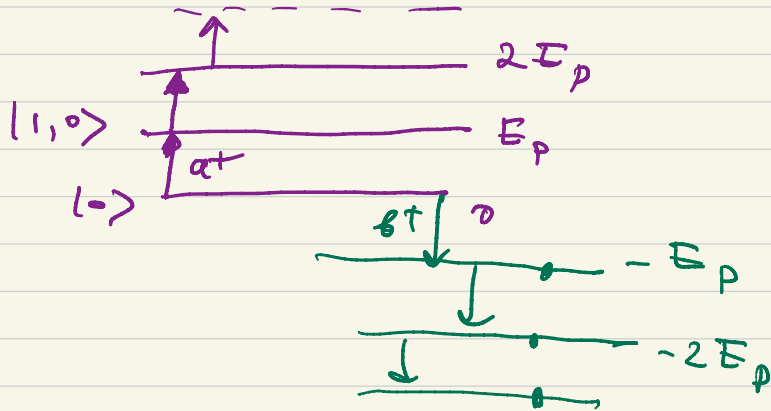 2E_p
|1,0⟩ E_p
a†
|0⟩ b† 0
-E_p
-2E_p